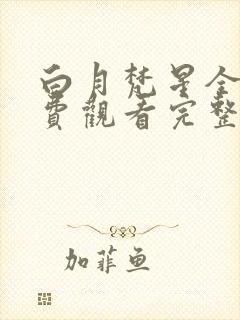 白月梵星全
費觀看完整
加菲魚